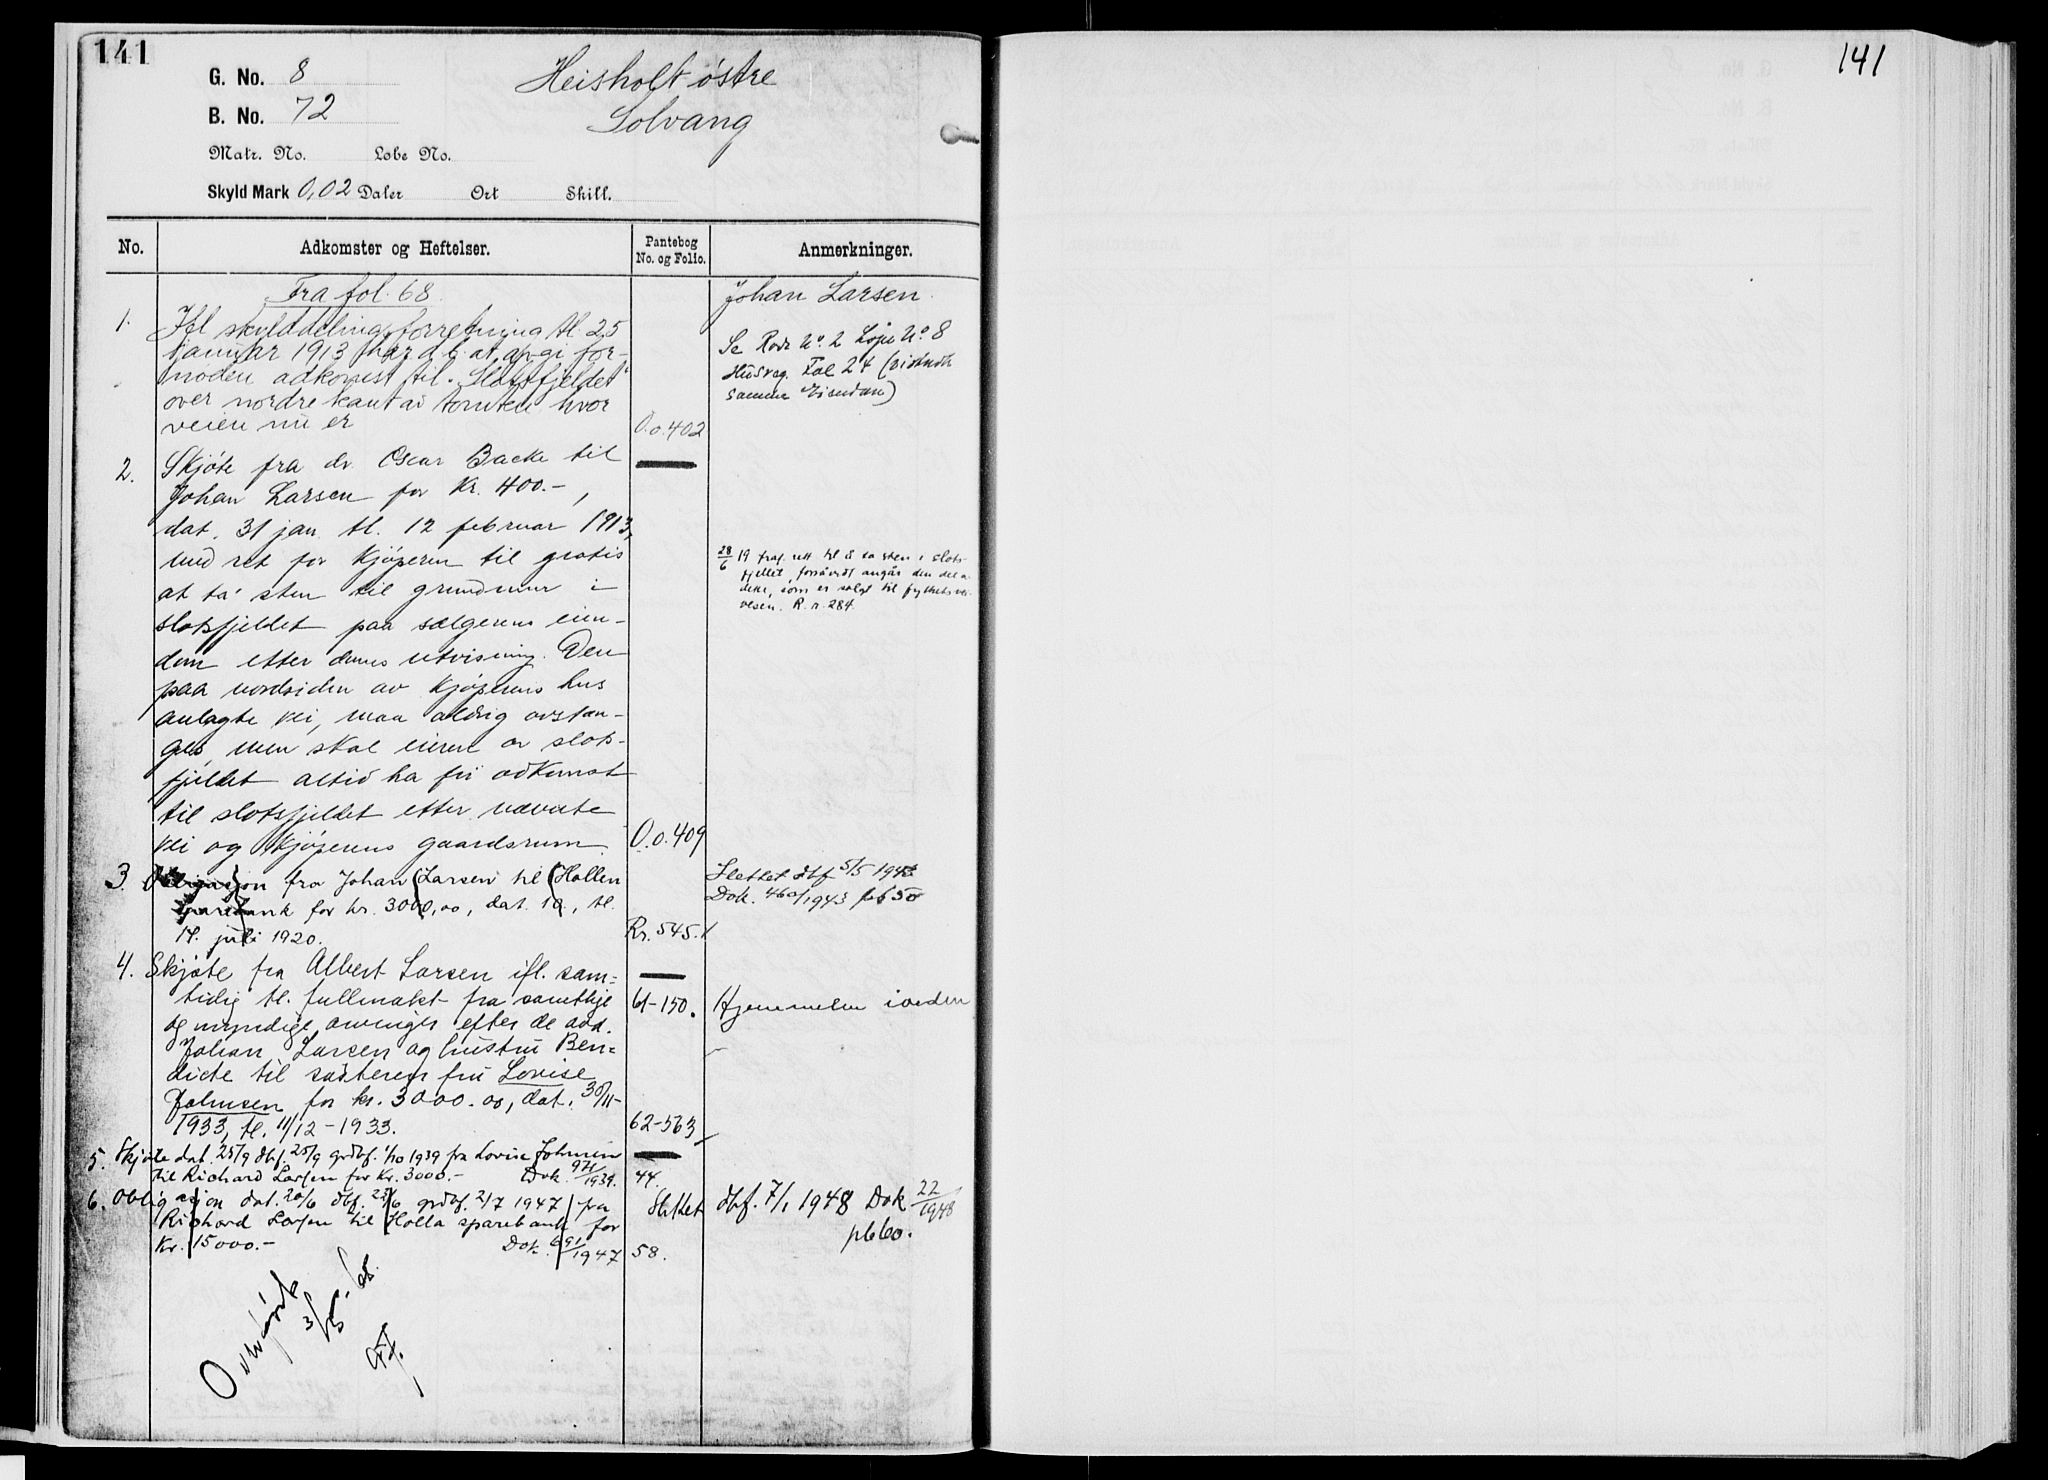 141
G. No. 8
Heisholt østre
B. No. 72
Solvang
Matr. No. Løbe No.
Skyld Mark 0,02 Daler Ort Skill.
No. Adkomster og Heftelser. Pantebog No. og Folio. Anmerkninger.
Fra fol. 68
1. Ifl skylddelingsforretning tl. 25
januar 1913 har d.b. at avgi for-
nøden adkomst til "Slotsfjeldet"
over nordre kant av tomten hvor
veien nu er O.o.402
Johan Larsen.
Se Rode No. 2 Løpe No. 8
Husreg. Fol 24 (vistnok
samme Eiendom)
2. Skjøte fra dr. Oscar Backe til
Johan Larsen for Kr. 400.-,
dat. 31 jan. tl. 12 februar 1913,
med ret for kjøperen til gratis
at ta' sten til grundmur i
slotsfjeldet paa sælgerens eien-
dom etter dennes utvisning. Den
paa nordsiden av kjøperens hus
anlagte vei, maa aldrig avstæn-
ges, men skal eieren av slots-
fjeldet altid ha fri adkomst
til slotsfjeldet etter nævnte
vei og kjøperens gaardsrum. O.o.409
28/6 19 fraf. rett til å ta sten i slots-
fjellet, forsåvidt angår den del a-
dette, som er solgt til fylkets vei-
vesen. R. n. 284.
3. Obligasjon fra Johan Larsen til Hollen
sparebank for kr. 3000,00, dat. 10., tl.
14. juli 1920. Rr. 545.
Slettet dbf 5/5 1943
Dok. 460/1943 pb 50
4. Skjøte fra Albert Larsen ifl. sam-
tidig tl. fullmakt fra samtlige 61-150. Hjemmelen iorden
og myndige arvinger efter de avd.
Johan Larsen og hustru Ben-
dicte til søsteren fru Lovise
Johnsen for kr. 3000.00, dat. 30/11-
1933, tl. 11/12-1933. 62-563
5. Skjøte dat. 25/9 dbf. 25/9 grdbf. 1/10 1939 fra Lovise Johnsen
til Richard Larsen for Kr. 3000.- Dok. 971/1939. 44.
6. Obligasjon dat. 20/6 dbf. 22/6 grdbf. 2/7 1947 fra
Slettet dbf. 7/1 1948 Dok 22/1948
Richard Larsen til Holla sparebank for
pb 60.
Kr. 15000.- Dok. 691/1947 58.
Overført
3/5-68.
141